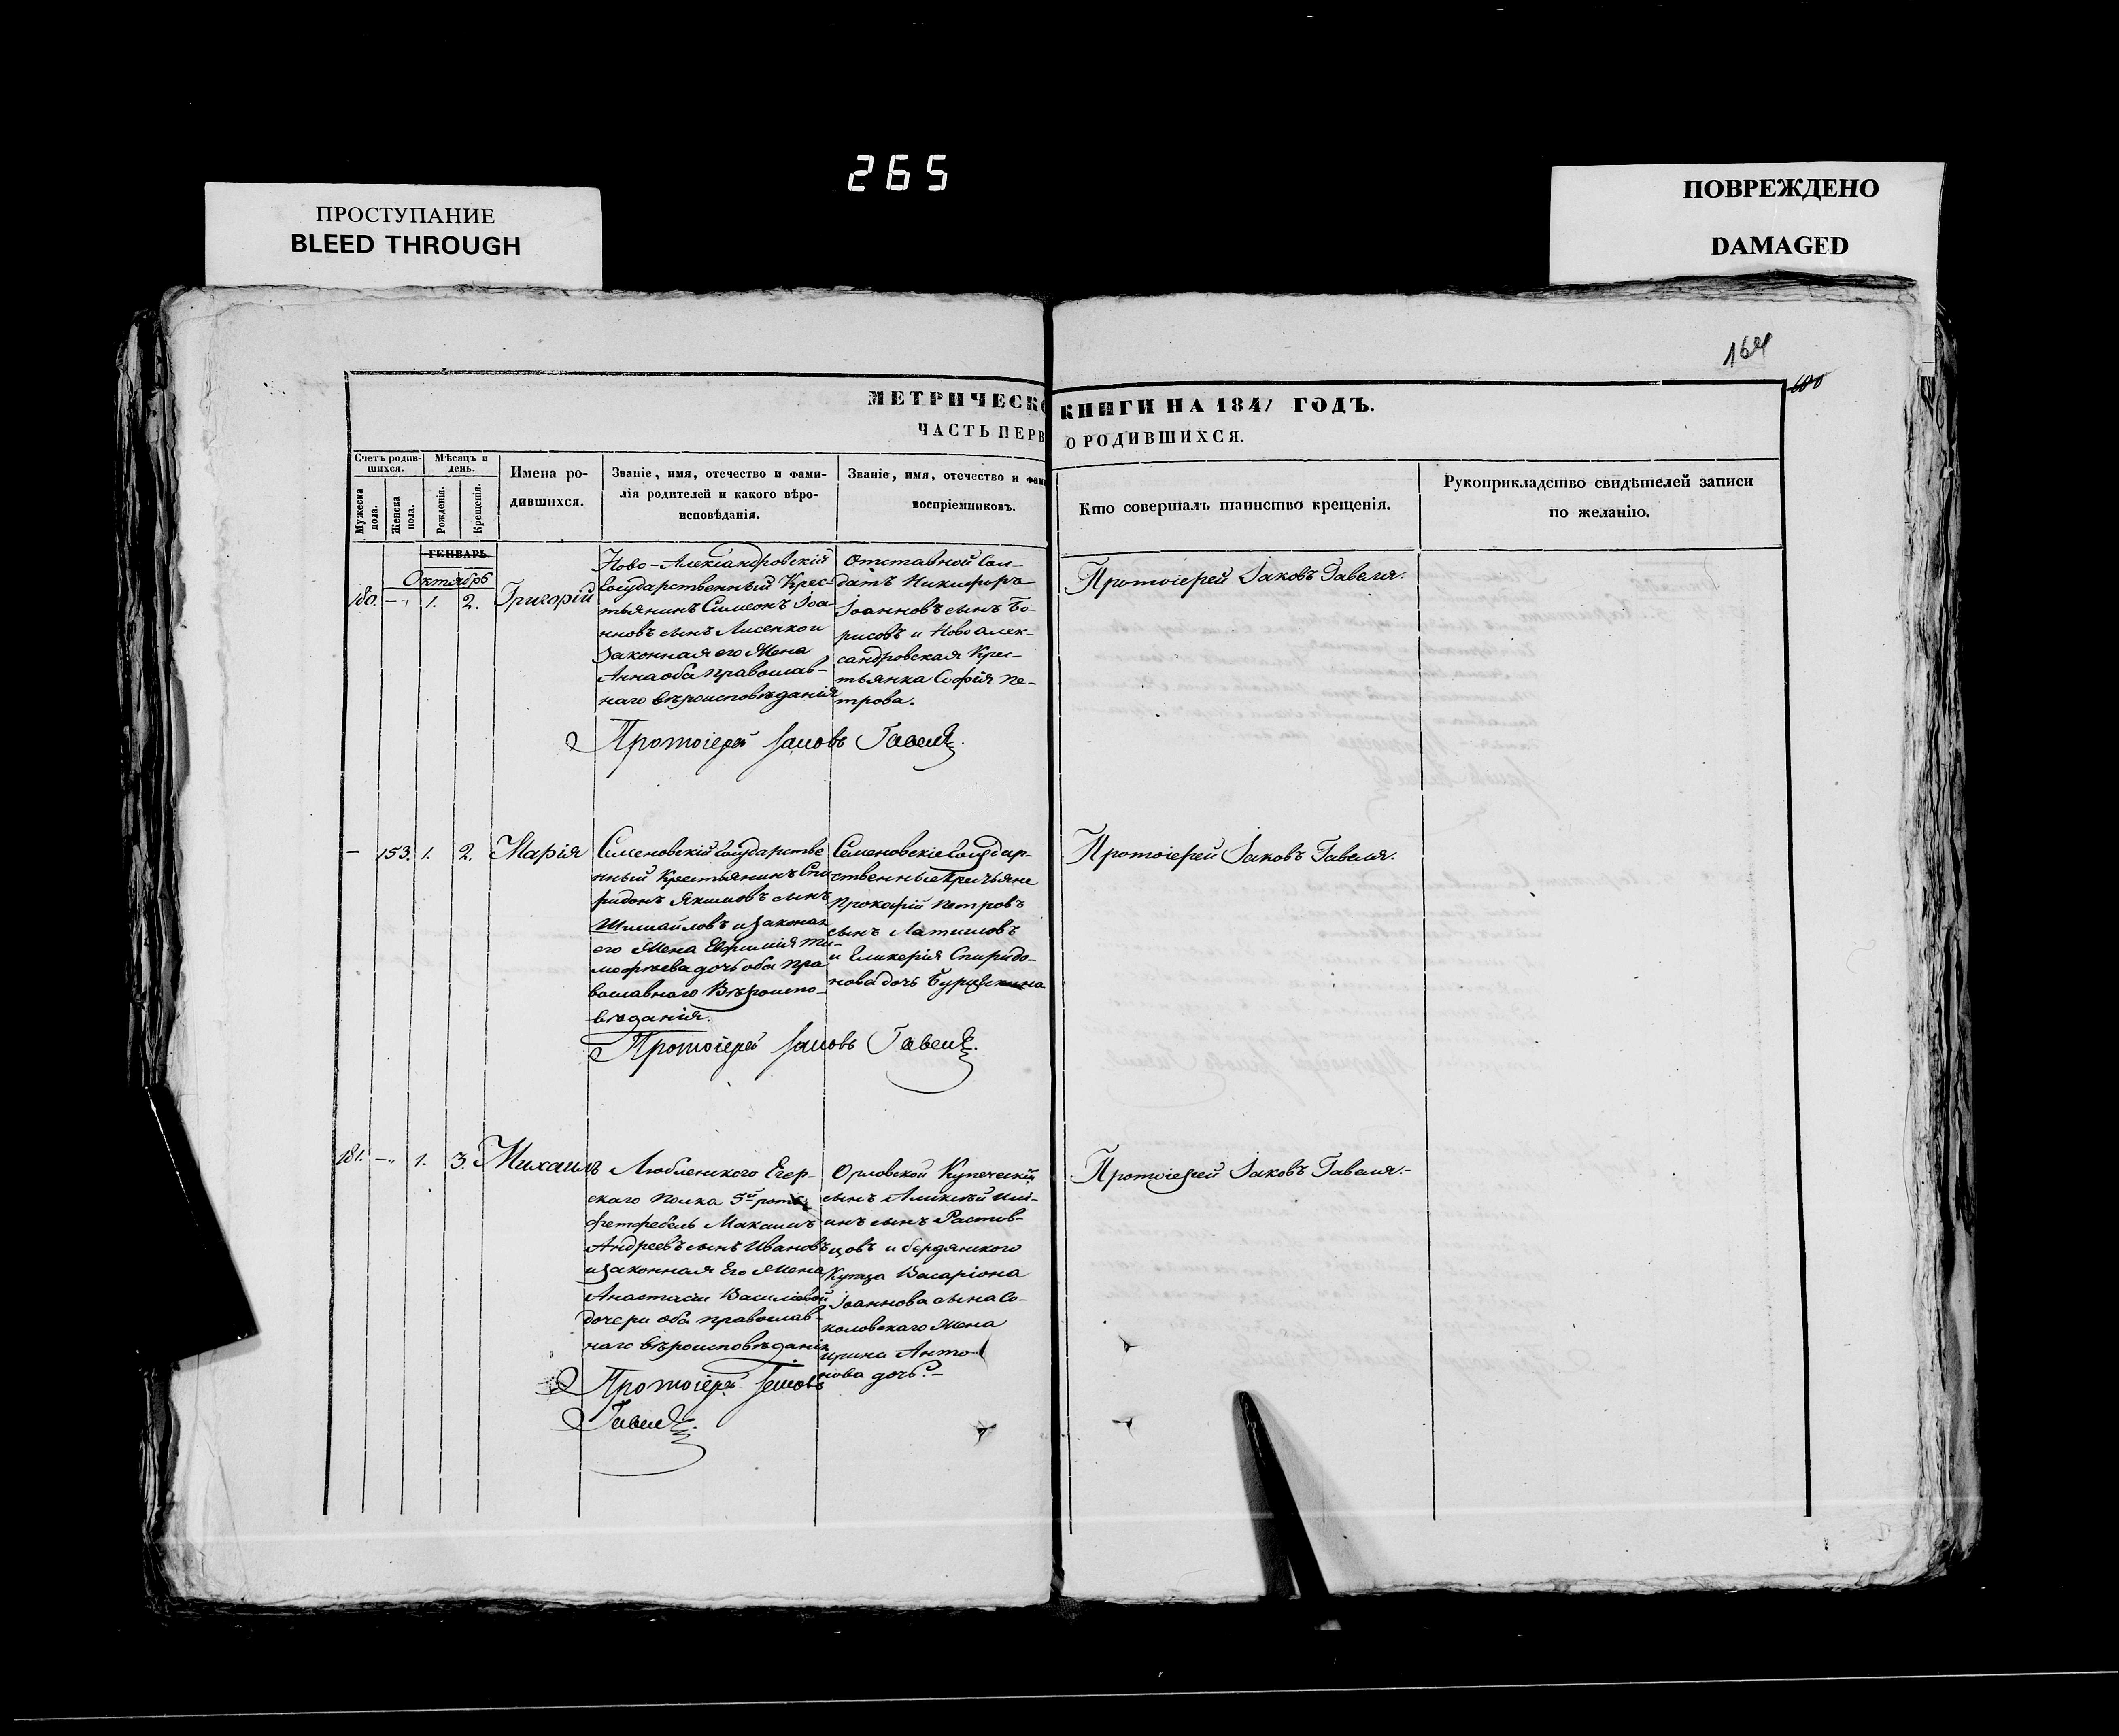 265
ПРОСТУПАНИЕ
BLEED THROUGH
ПОВРЕЖДЕНО
DAMAGED
164
МЕТРИЧЕСКО КНИГИ НА 1841 ГОДЪ.
ЧАСТЬ ПЕРВ О РОДИВШИХСЯ.
Счетъ родив-
шихся.
Мѣсяцъ и
день.
Мужеска
пола.
Женска
пола.
Рожденія.
Крещенія.
Имена ро-
дившихся.
Званіе, имя, отечество и фами-
лія родителей и какого вѣро-
исповѣданія.
Званіе, имя, отечество и фам
воспріемниковъ.
Кто совершалъ таинство крещенія.
Рукоприкладство свидѣтелей записи
по желанію.
ГЕНВАРЬ.
Октябрь
180. — 1. 2. Григорій
Ново-Александровскій
Государственный Крес-
тьянинъ Симеонъ Іоа-
нновъ сынъ Лисенко и
Законная его Жена
Анна оба православ-
наго вѣроисповѣданія
Отставной Сол-
датъ Никифоръ
Іоанновъ сынъ Бо-
рисовъ и Ново Алек-
сандровская Крес-
тьянка Софія Пе-
трова.
Протоіерей Іаковъ Гавеля.
Протоіерей Іаковъ Гавеля
— 153. 1. 2. Марія
Семеновскій Государстве
нный Крестьянинъ Спи
ридонъ Якимовъ сынъ
и законая
его Жена Евфимія Ти-
мофѣева дочь оба пра
вославнаго Вѣроиспо-
вѣданія.
Семеновскіе Государ-
ственные Крестьяне
Прокофій Петровъ
сынъ
и Гликерія Спиридо-
нова дочь
Протоіерей Іаковъ Гавеля.
Протоіерей Іаковъ Гавеля.
181. — 1. 3. Михаилъ
Люблинского Егер-
скаго Полка 5й роты
Фетфебель Максимъ
Андреевъ сынъ Ивановъ
и законная Его Жена
Анастасіи Василіевой
дочери оба православ-
наго вѣроисповѣданія
Орловской Купеческій
сынъ Алексѣй Иль-
инъ сынъ Растив-
цовъ и бердянского
Купца Васаріона
Іоаннова сына Со-
коловскаго Жена
ирина Анто
нова дочь.
Протоіерей Іаковъ Гавеля.
Протоіерей Іаковъ
Гавеля.